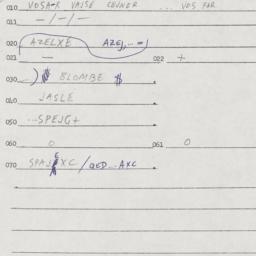 010 VOSA-R VAISE CEVNER ... VOS FOR
011 —/—/—
020 AZELXE AZEJ,..=)
021 — 022 +
030 —) $ BLOMBE $
040 JASLE
050 ...SPEJG+
060 O 061 O
070 SPAJEXC/QED...AXC